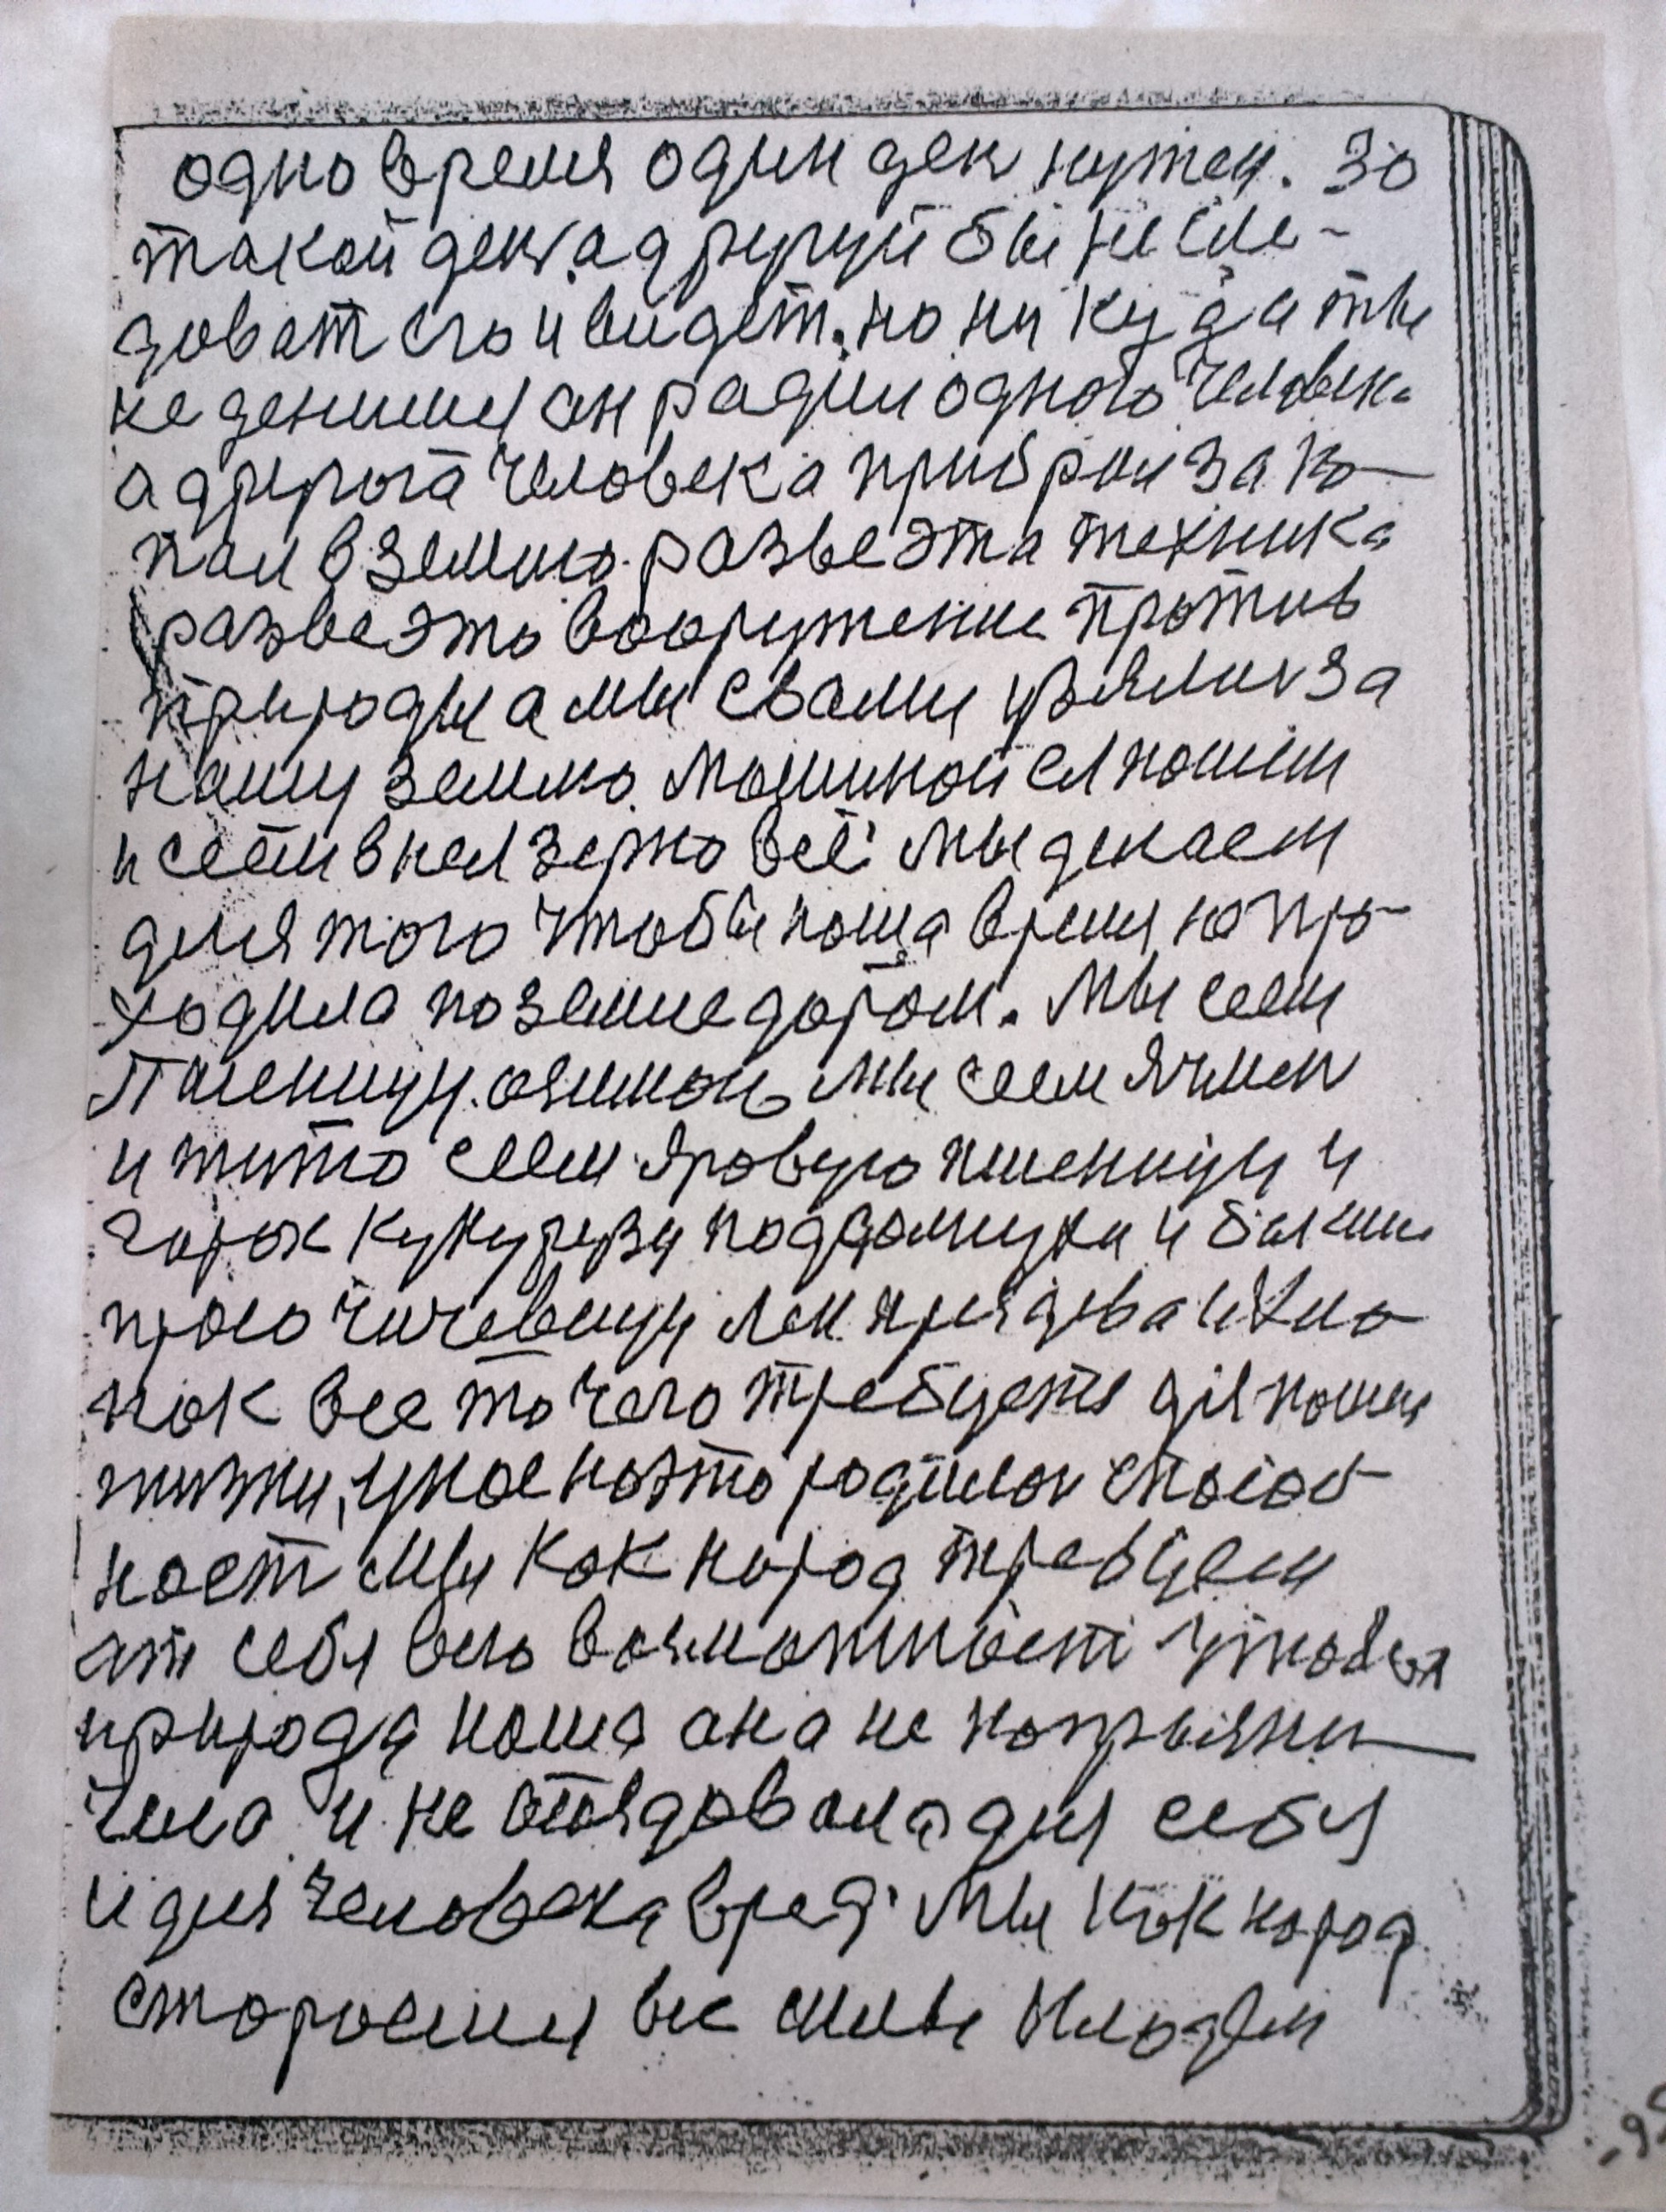 одно время один ден нужен. 30
такой ден, а другуй бы не сле-
доват его и видет. но ни куда ты
не денишся он радил одного человека
а другога человека прибрал зако-
пал в землю. разве эта техника
разве это вооружение против
природы а мы свами взялис за
нашу землю. машиной ея пашем
и сеем внея зерно всё мы делаем
для того чтобы наша время ю про-
ходила по земле даром. Мы сеем
Пшеницу. озимою мы сеем ячмен
и жито сеем яровую пшеницу и
горох кукурузу подсолнухи и бакши
просо чичевицу лен
все то чего требуетя для нашей
жизни, у нас на это родилас способ-
ност мы как народ требуем
от себя всю возможност чтобы
природа наша она не
и не создовала для себя
и для человека вред. Мы как народ
стороемся все силы кладем